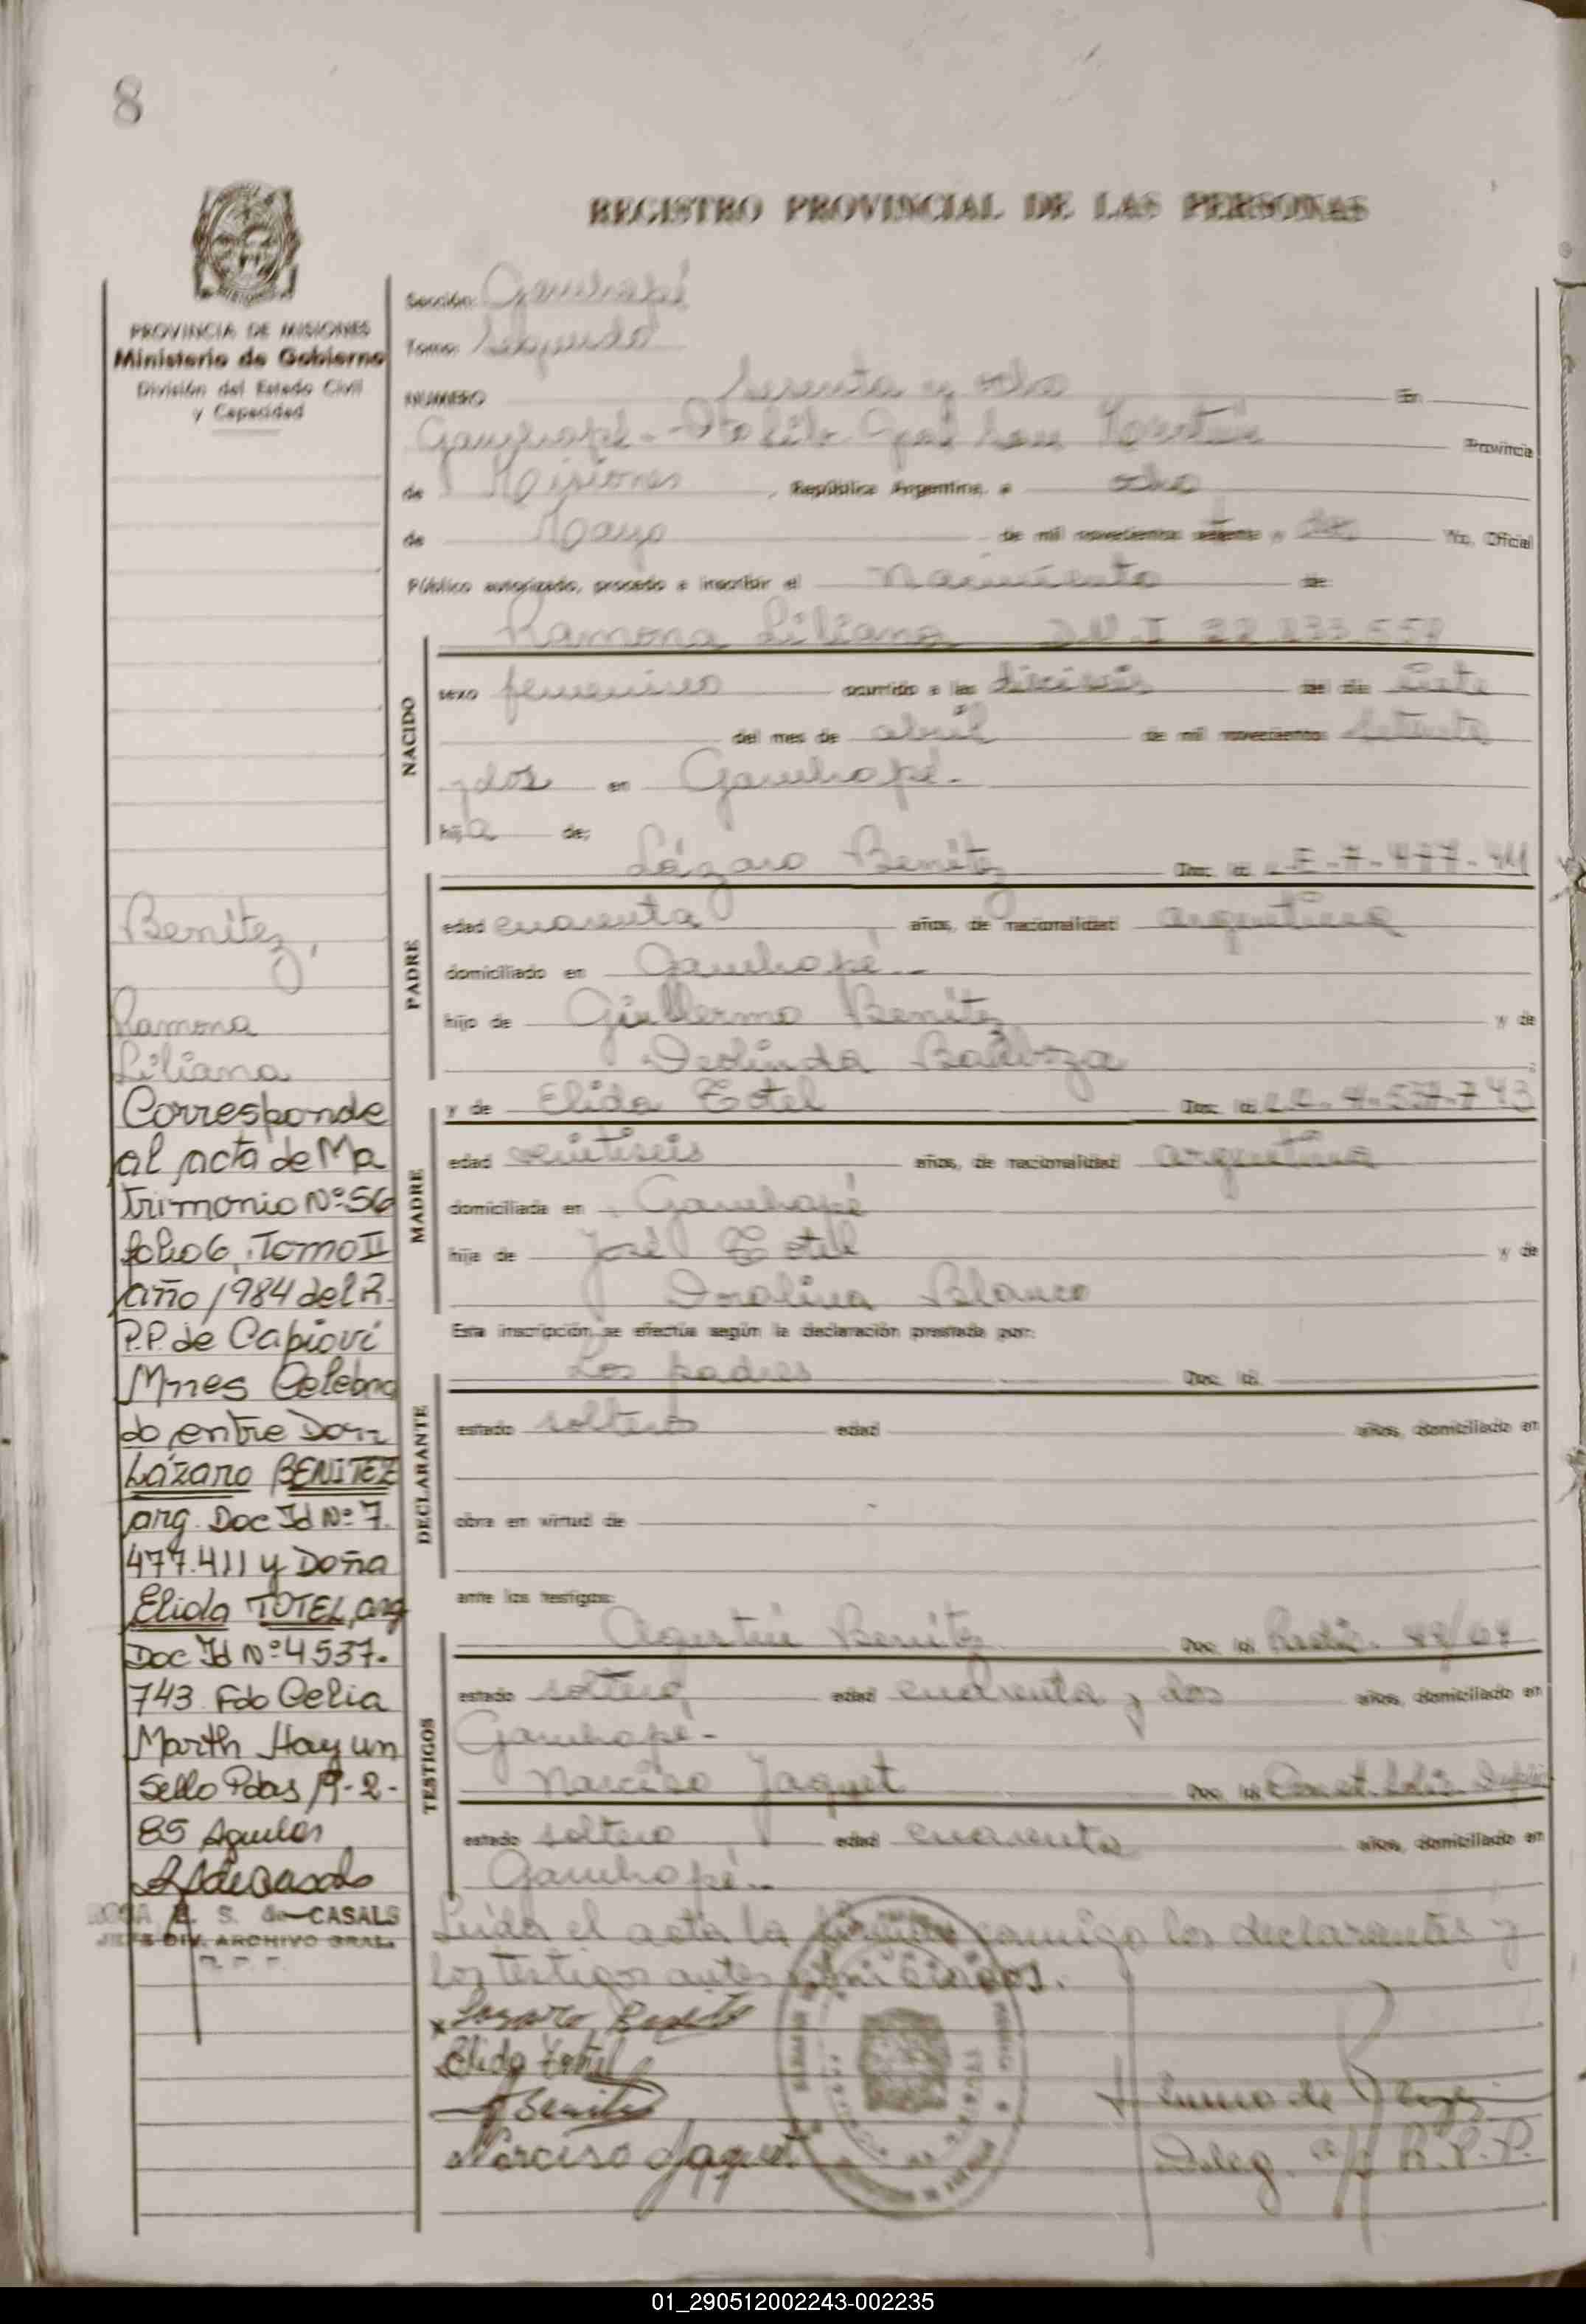 8
REGISTRO PROVINCIAL DE LAS PERSONAS
PROVINCIA DE MISIONES
Ministerio de Gobierno
División del Estado Civil
y Capacidad
Sección: Garuhapé
Tomo: Segundo
NUMERO Sesenta y ocho En
Garuhapé - Dto Lib. Gral San Martín Provincia
de Misiones, República Argentina, a ocho
de Mayo de mil novecientos setenta y dos Yo, Oficial
Público autorizado, procedo a inscribir el Nacimiento de
Ramona Liliana D.N.I 22.833.559
NACIDO
sexo femenino ocurrido a las dieciseis del día siete
del mes de abril de mil novecientos setenta
y dos en Garuhapé.
hija de:
Lázaro Benítez Doc. Id. L.E-7-477-411
PADRE
edad cuarenta años, de nacionalidad argentina
domiciliado en Garuhapé
hijo de Guillermo Benítez y de
Deolinda Barboza
y de Elida Totel Doc. Id. L.C.-4-537-743
MADRE
edad veintiseis años, de nacionalidad argentina
domiciliada en Garuhapé
hija de José Totel y de
Doralina Blanco
Esta inscripción se efectúa según la declaración prestada por:
Los padres Doc. Id.
DECLARANTE
estado solteros edad años, domiciliado en
obra en virtud de
ante los testigos:
Agustín Benítez Doc. Id.
TESTIGOS
estado soltero edad cuarenta y dos años, domiciliado en
Garuhapé-
Narciso Jaquet Doc. Id.
estado soltero edad cuarenta años, domiciliado en
Garuhapé..
Leída el acta la firman conmigo los declarantes y
los testigos antes
x Lazaro Benite
Elida Totel
Benitez
Narciso Jaquet
Deleg. R.P.P.
Benítez,
Ramona
Liliana
Corresponde
al acta de Ma
trimonio Nº 56
folio 6, Tomo II
año 1984 del R.
P.P. de Capioví
Mnes Celebra
do entre Don
Lázaro BENITEZ
arg. Doc Id Nº 7.
477.411 y Doña
Elida TOTEL, arg
Doc Id Nº 4537.
743 Fdo Celia
Marth Hayun
Sello Pdas 19-2-
85 Aguilar
E. S. de CASALS
JEFE DIV. ARCHIVO GRAL.
01_290512002243-002235